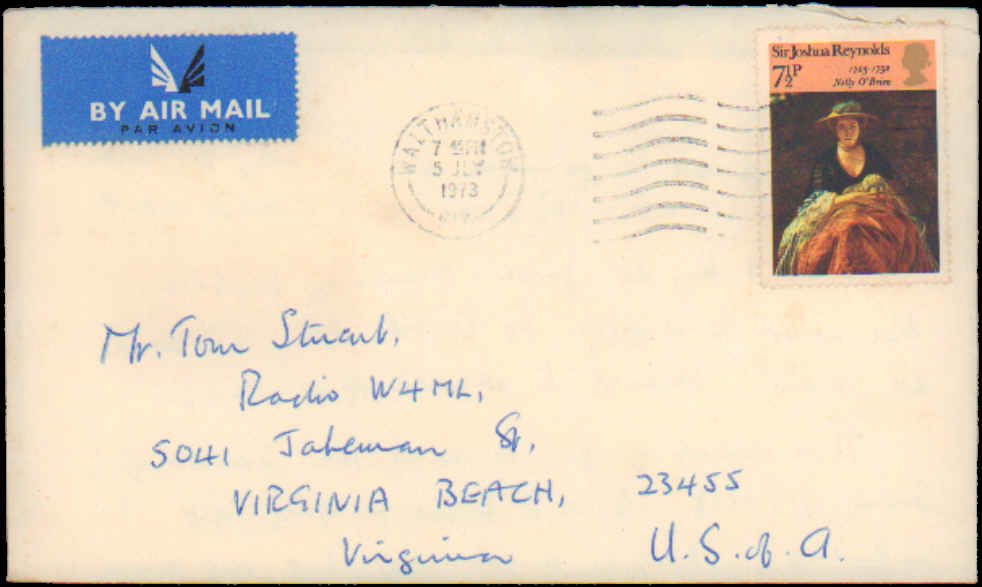 BY AIR MAIL
PAR AVION
WALTHAMSTOW
5 JLY
1973
Sir Joshua Reynolds
7½P
1723-1792
Nelly O'Brien
Mr. Tom Stuart,
Radio W4ML,
5041 Jakeman St,
VIRGINIA BEACH, 23455
Virginia U.S. of A.